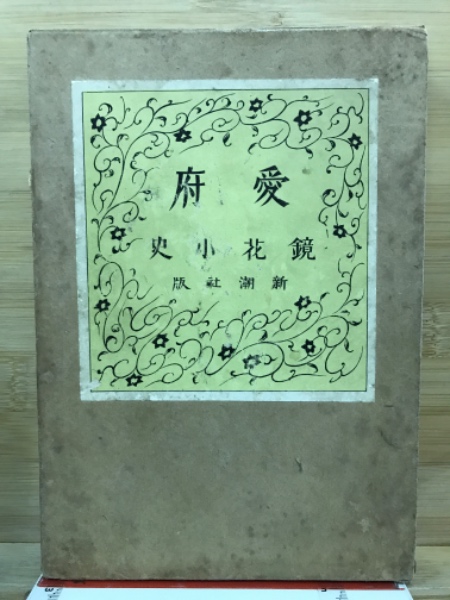 愛府
鏡花小史
新潮社版